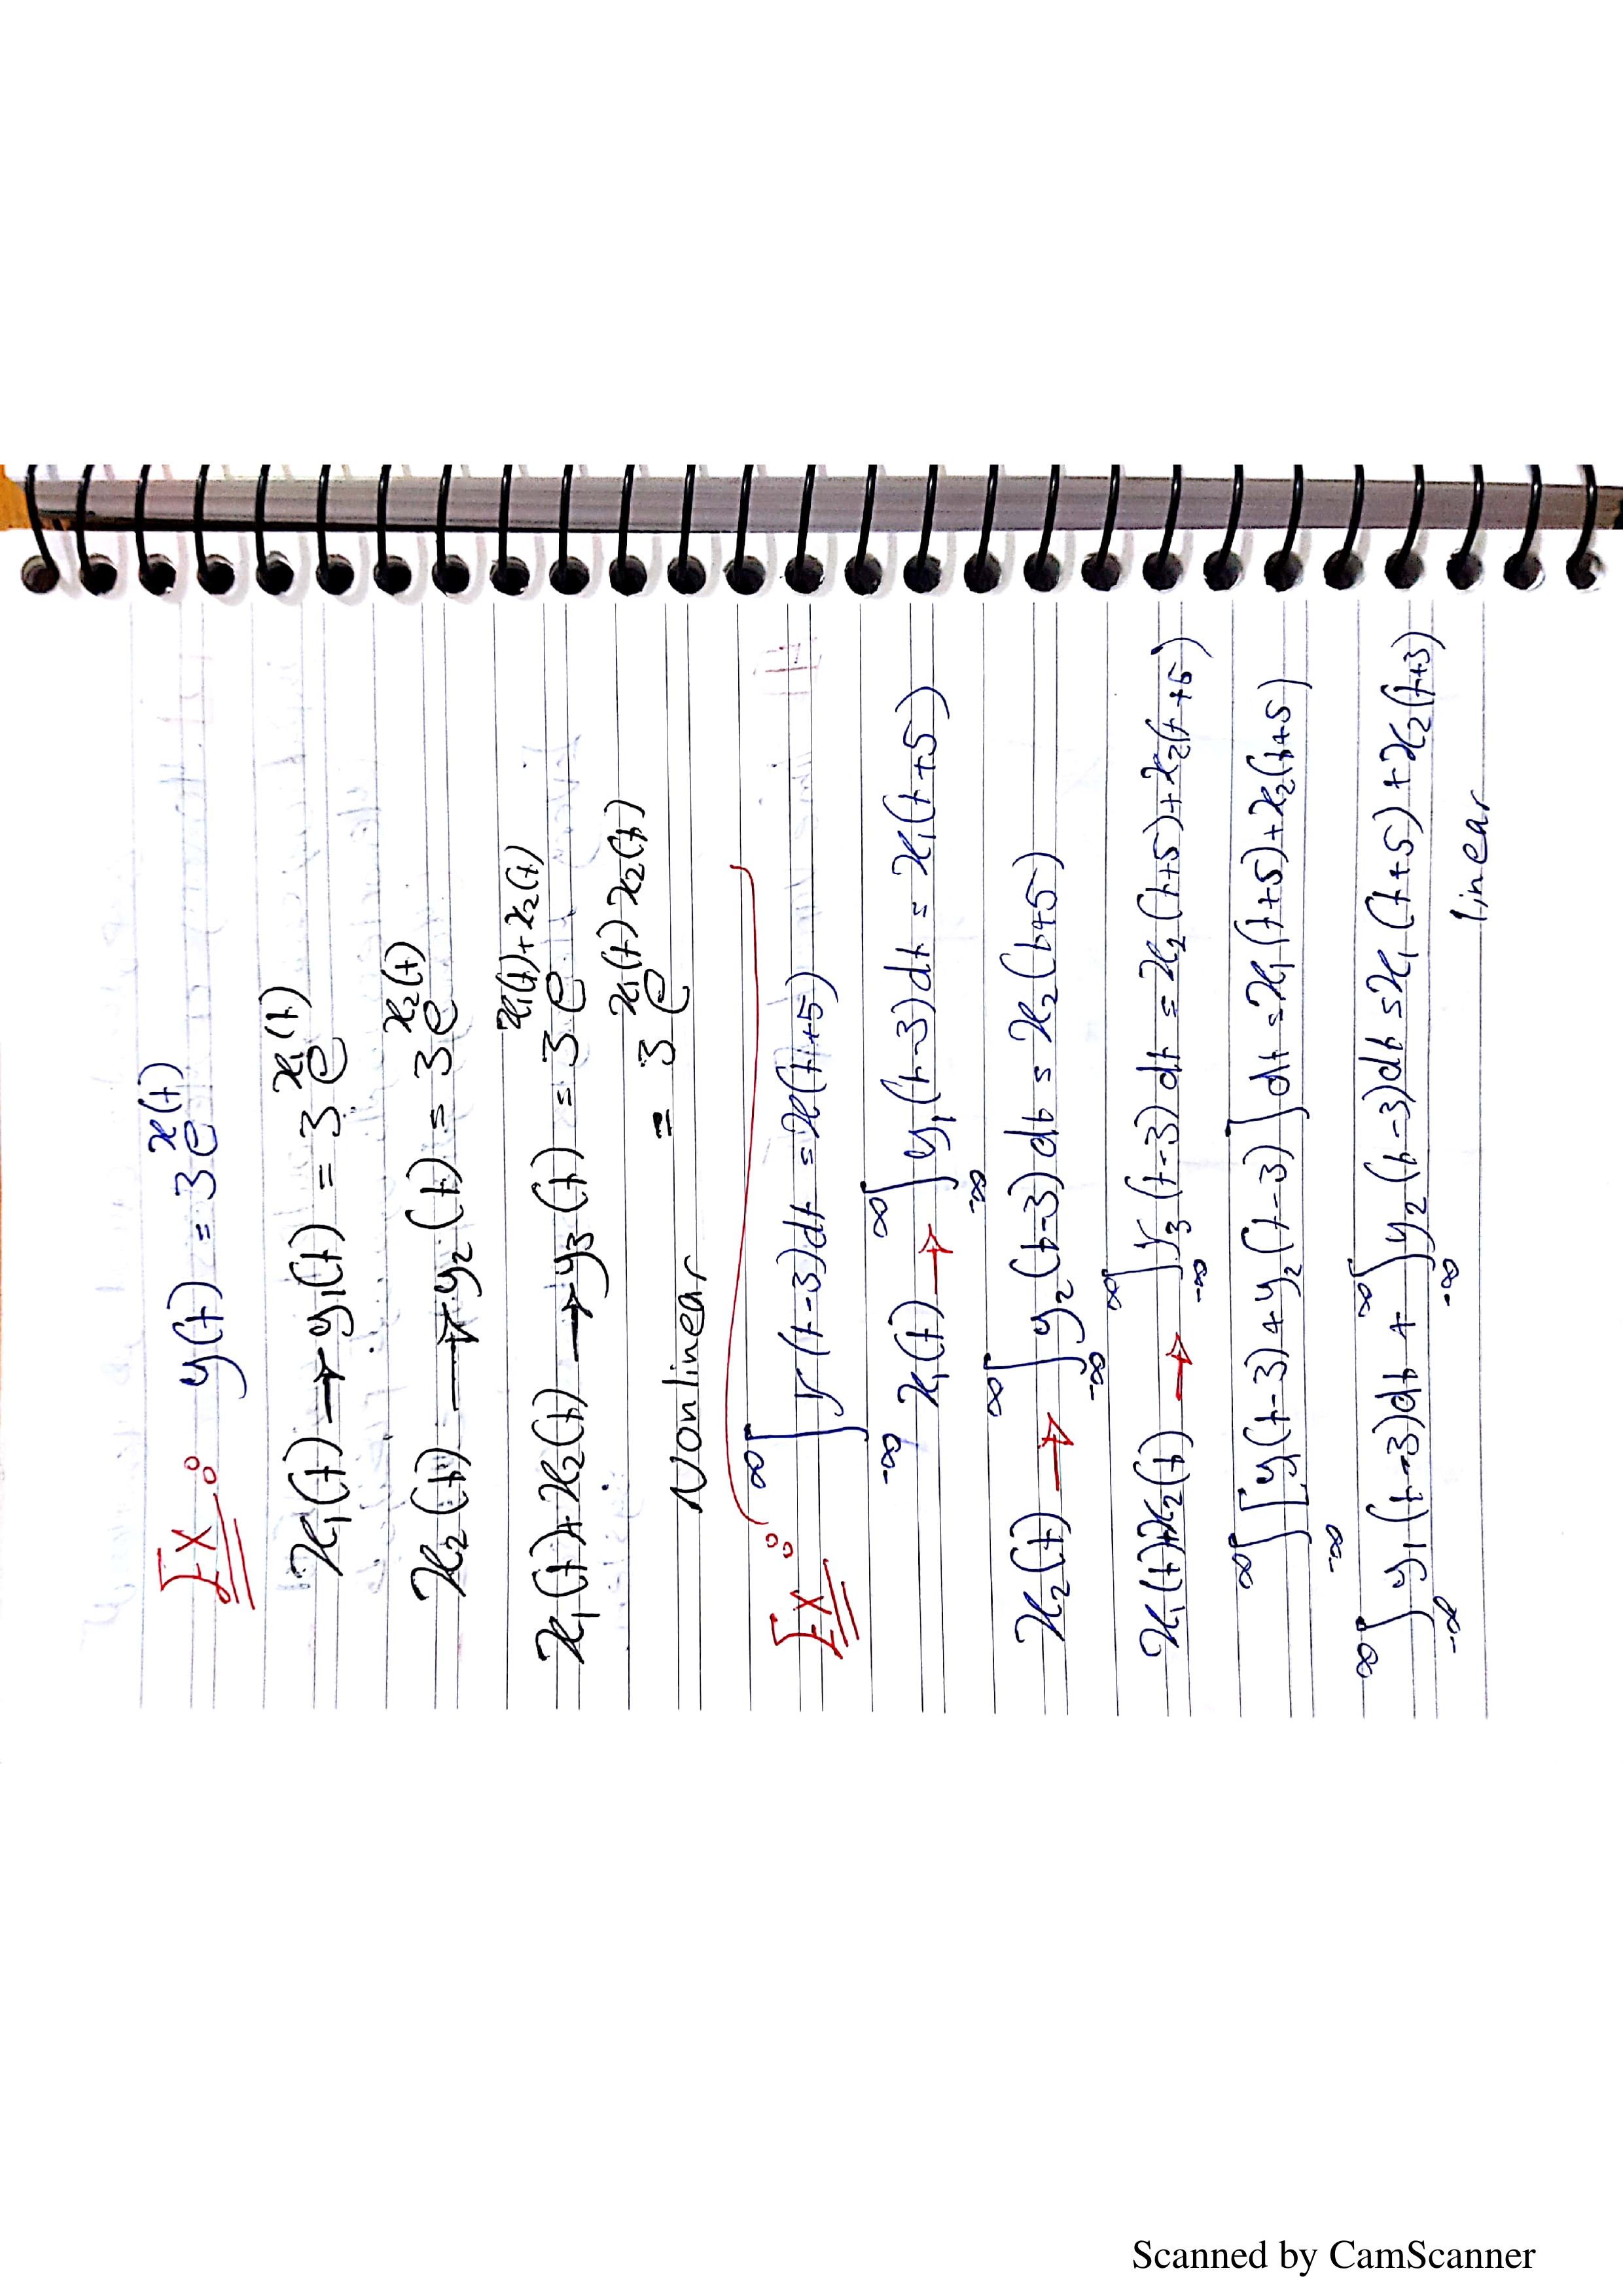 Ex: y(t) = 3e^x(t)
x₁(t) → y₁(t) = 3e^x₁(t)
x₂(t) → y₂(t) = 3e^x₂(t)
x₁(t)+x₂(t) → y₃(t) = 3e^x₁(t)+x₂(t)
= 3e^x₁(t) x₂(t)
Nonlinear
Ex: ∫_-∞^∞ y(t-3)dt = x(t+5)
x₁(t) → ∫_-∞^∞ y₁(t-3)dt = x₁(t+5)
x₂(t) → ∫_-∞^∞ y₂(t-3)dt = x₂(t+5)
x₁(t)+x₂(t) → ∫_-∞^∞ y₃(t-3)dt = x₂(t+5)+x₂(t+5)
∫_-∞^∞ [y(t-3)+y₂(t-3)]dt = x₁(t+5)+x₂(t+5)
∫_-∞^∞ y₁(t-3)dt + ∫_-∞^∞ y₂(t-3)dt = x₁(t+5)+x₂(t+3)
linear
Scanned by CamScanner